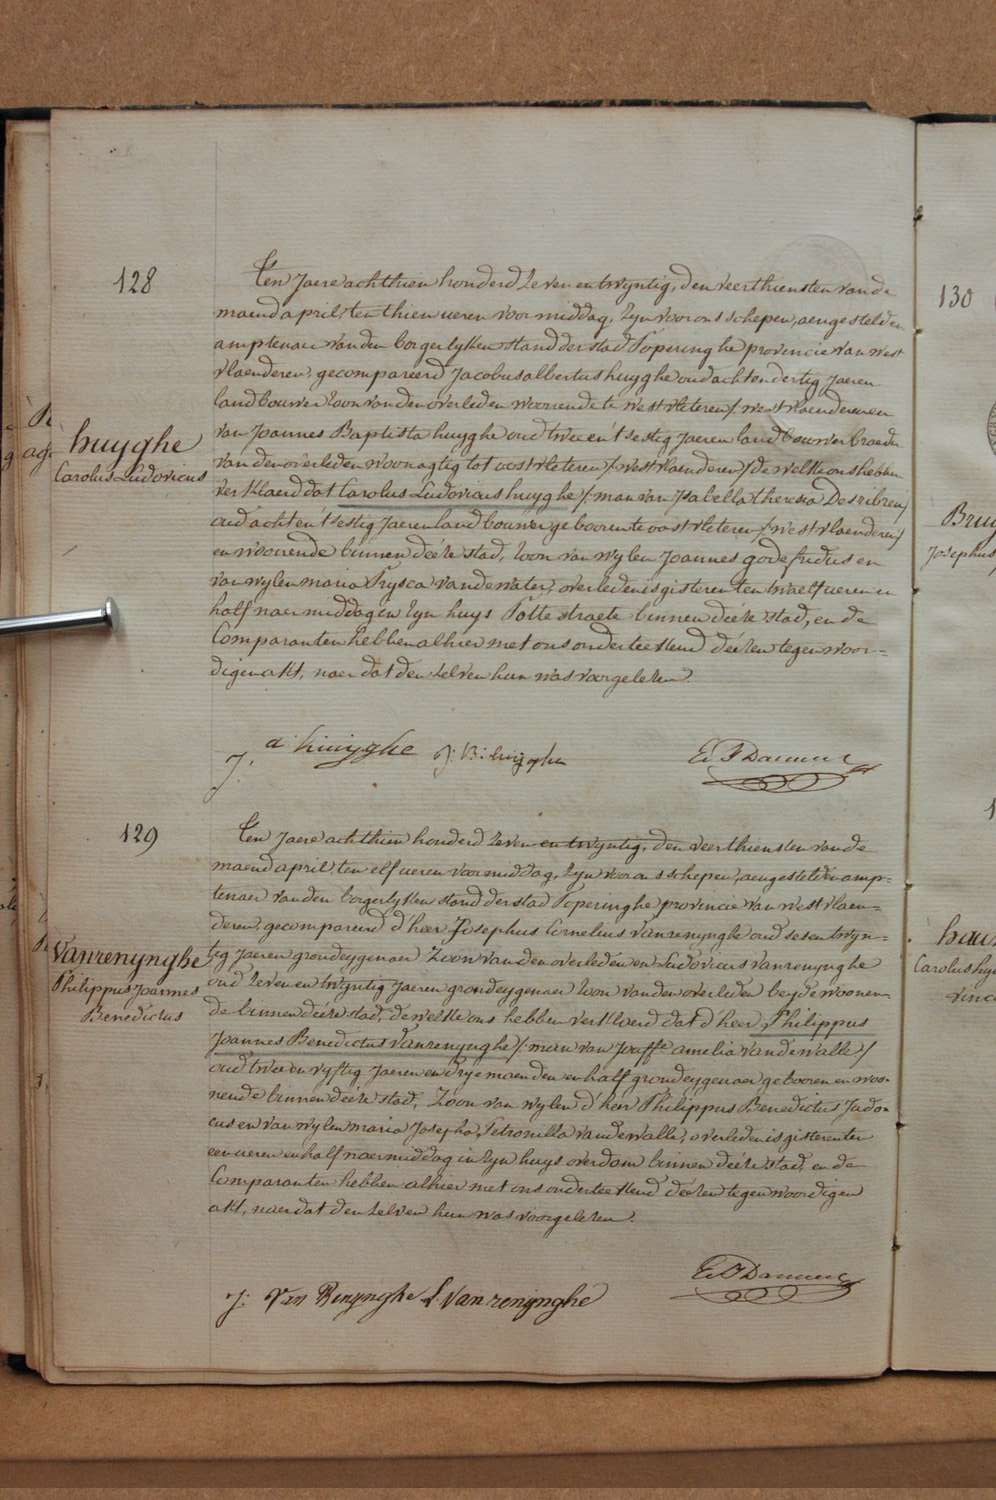 128
Ten Jaere achthien honderd zeven en twyntig, den veerthiensten van de
maend april, ten thien ueren voormiddag, zyn voor ons schepen, aengestelden
amptenaer van den borgerlyken stand der stad Poperinghe provincie van west
vlaenderen, gecompareerd Jacobus albertus huyghe oud acht en dertig Jaeren
landbouwer zoon van den overleden woonende te westvleteren /west vlaenderen/ en
van Joannes Baptista huyghe oud twee en t'sestig Jaeren landbouwer broeder
van den overleden woonagtig tot oostvleteren /:westvlaenderen/ de welke ons hebben
verklaerd dat Carolus Ludovicus huyghe /:man van Isabella theresia
oud acht en t'sestig Jaeren landbouwer gebooren te oostvleteren /westvlaenderen/
en woonende binnen deéze stad, zoon van wylen Joannes godefridus en
van wylen maria Prysca van de water, overleden is gisteren ten twaelf ueren en
half naer middag in zyn huys Potte straete binnen deéze stad, en de
Comparanten hebben alhier met ons onderteekend deézen tegenwoor=
digen akt, naer dat den zelven hun was voorgelezen.
huyghe
Carolus Ludovicus
J. a huijghe J: B: huijghe
129
Ten Jaere achthien honderd zeven en twyntig, den veerthiensten van de
maend april, ten elf ueren voormiddag, zyn voor ons schepen, aengestelden amp=
tenaer van den borgerlyken stand der stad Poperinghe provincie van westvlaen=
deren, gecompareerd d'heer Josephus Cornelius Vanrenynghe oud ses en twyn=
tig Jaeren grondeygenaer Zoon van den overleden en Ludovicus Vanrenynghe
oud zeven en twyntig Jaeren grondeygenaer zoon van den overleden beyde woonen=
de binnen deéze stad, de welke ons hebben verklaerd dat d'heer Philippus
Joannes Benedictus Vanrenynghe /:man van Jouffe amelia vandewalle/
oud twee en vyftig Jaeren en drye maenden en half grondeygenaer gebooren en woo=
nende binnen deéze stad, Zoon van wylen d'heer Philippus Benedictus Judo=
cus en van wylen maria Josepha Petronilla vandewalle, overleden is gisteren ten
een ueren en half naermiddag in zyn huys overdam binnen deéze stad, en de
Comparanten hebben alhier met ons onderteekend deézen tegenwoordigen
akt, naer dat den zelven hun was voorgelezen.
Vanrenynghe
Philippus Joannes
Benedictus
J: Van Renynghe L. Vanrenijnghe
130
Josephus